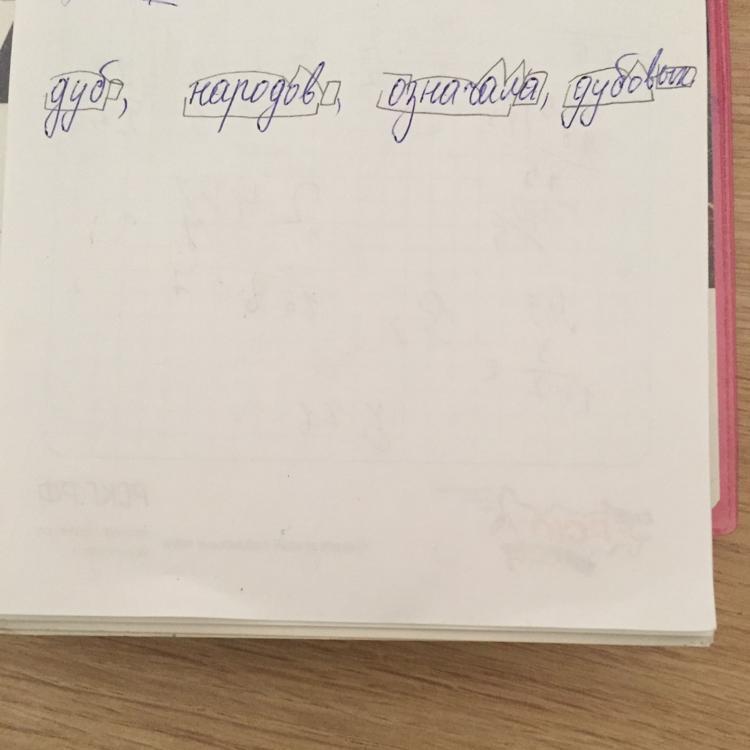 дуб, народов, означала, дубовых